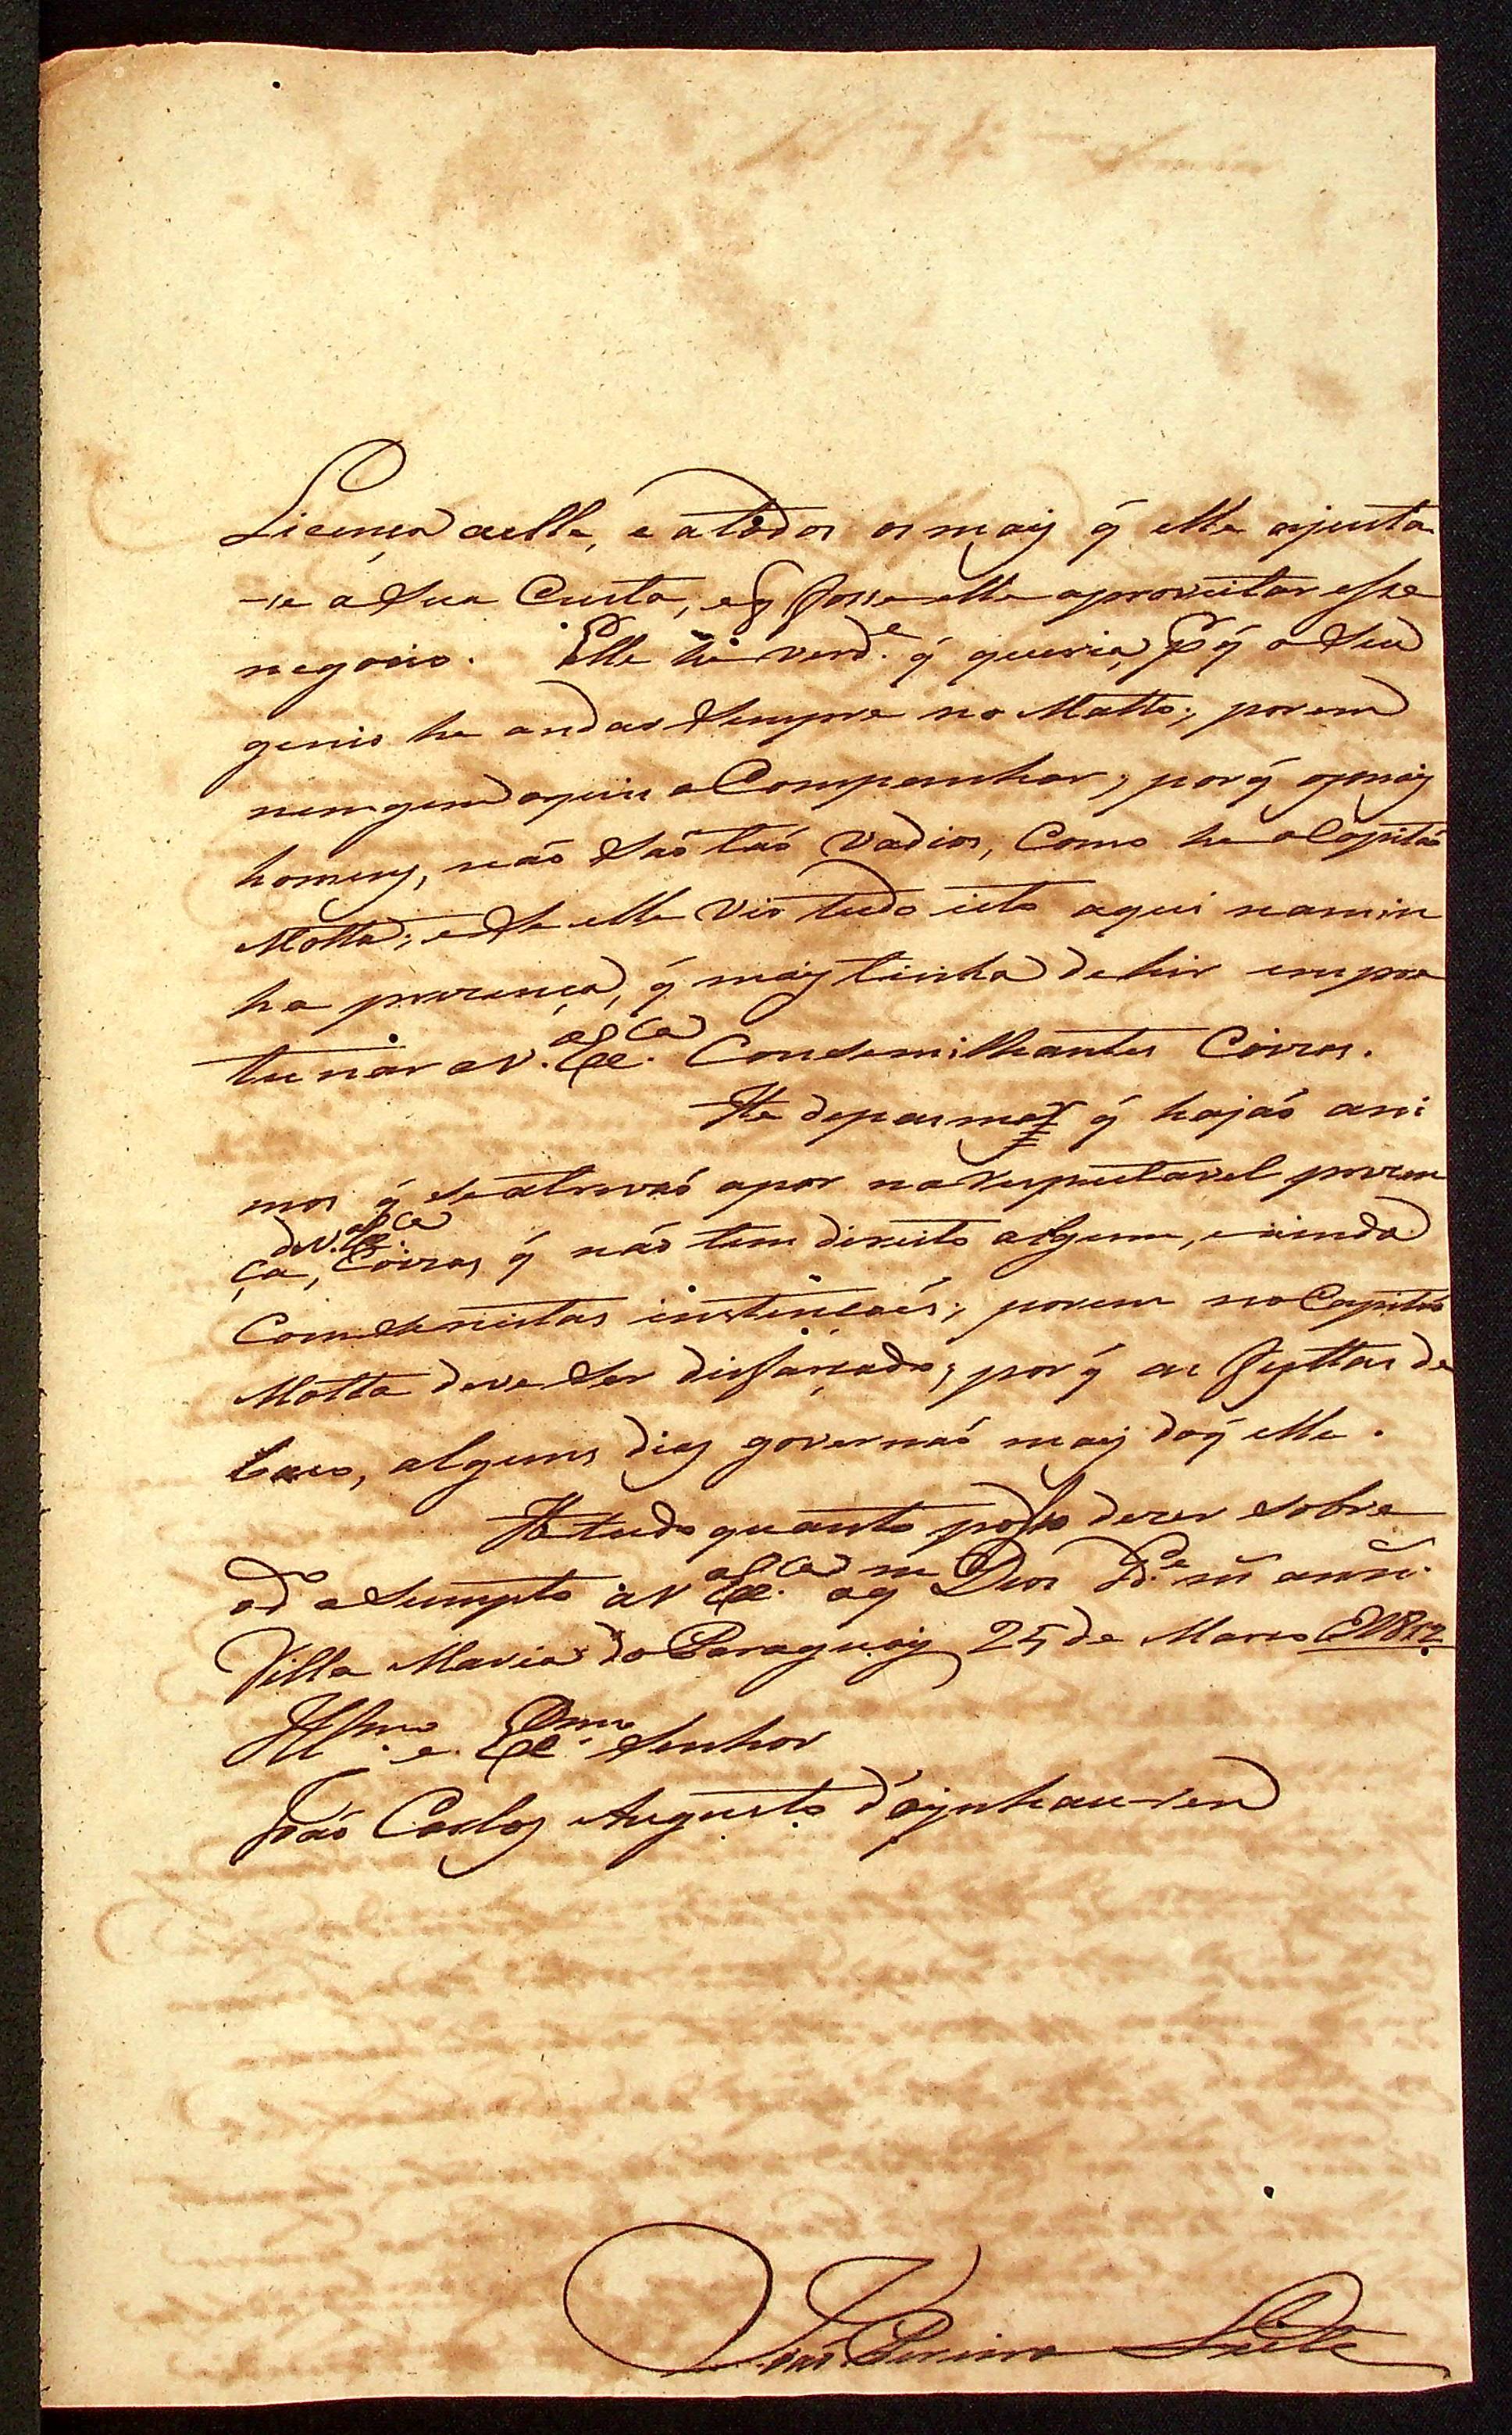 Licença aelle, e atodos os mais q̃ elle ajunta
-se aSua Custa, e q̃ fosse elle aproveitar esse
negocio. Elle he verd.e q̃ queria, p.r q̃ o Seu
genio he andar Sempre no Matto; porem
ninguem oquer aCompanhar, porq̃ osmais
homens, naõ Saõ taõ vadios, Como he oCapitaõ
Motta; eSe elle vio tudo isto aqui namin
ha prezença, q̃ mais tinha dehir emper
tunar aV. Ex.ca ConSemilhantes Coizas.
He depasmar q̃ hajaõ ani
mos q̃ Seatrevaõ apor naRespeitavel prezen
ça, deV. Ex.ca Coizas q̃ naõ tem direito algum, eainda
Com Senistas instençoẽs; porem noCapitaõ
Motta deve Ser disfarçado, porq̃ as
alguns dias governaõ mais doq̃ elle.
He tudo quanto posso dezer Sobre
od.o aSumpto aV. Ex.ca aq.m Deos G.de m.s ann.s
Villa Maria do Paraguay 25 de Marco D'1812
Ill.mo e Ex.mo Senhor
Joaõ Carlos Augusto d'Oeynhausen
Joaõ Pereira Leite